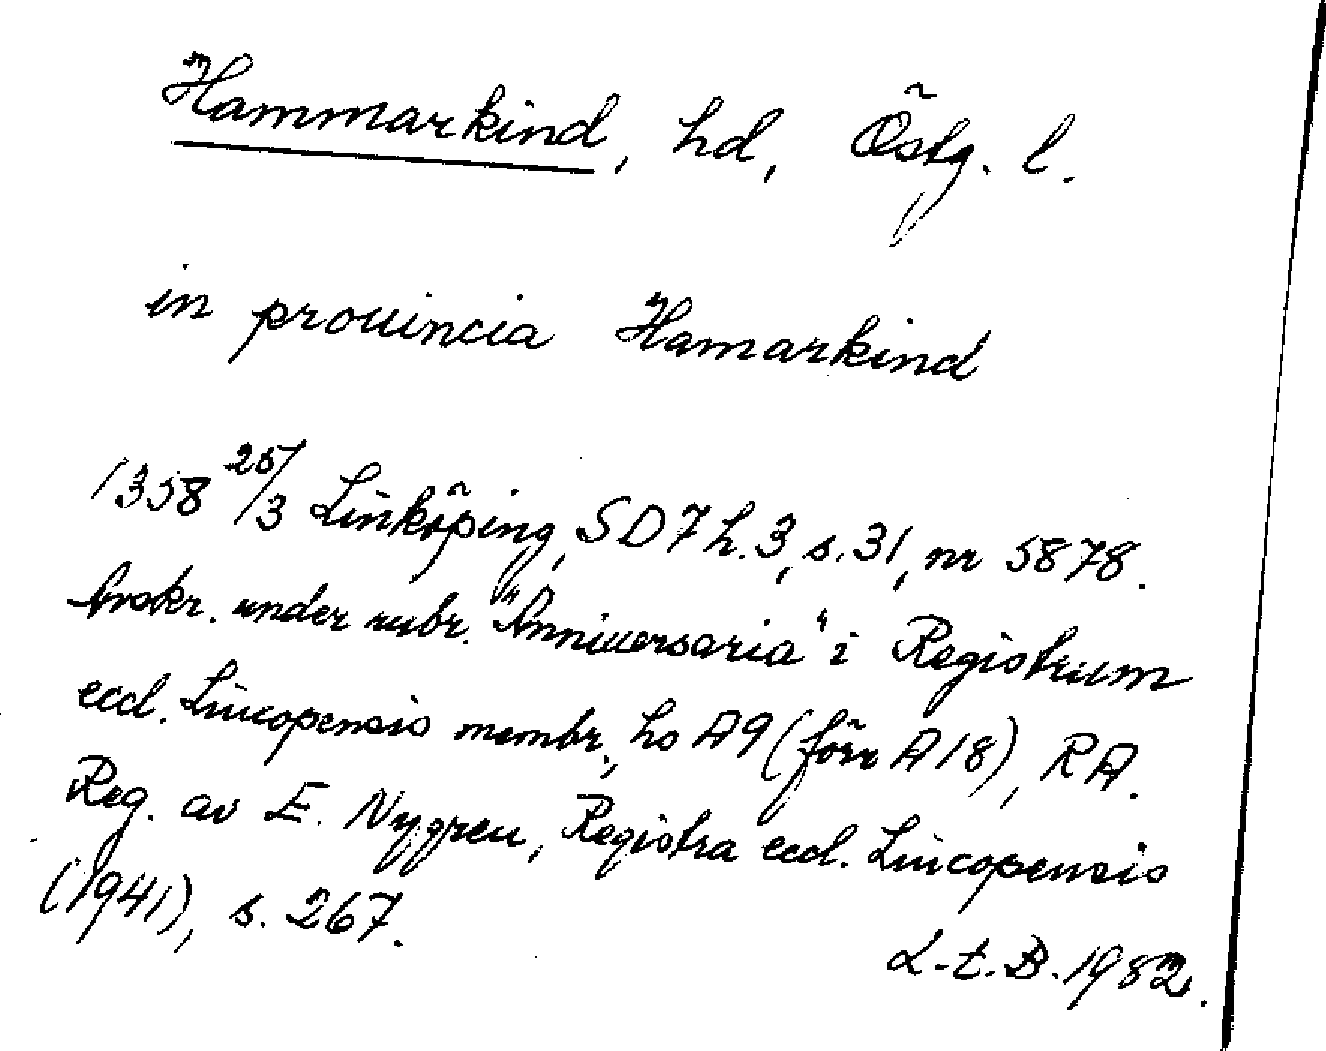 Hammarkind, hd, Östg. l.
in prouincia Hamarkind
1358 25/3 Linköping, SD 7 h. 3, s. 31, nr 5878.
Avskr. under rubr. "Anniuersaria" i Registrum
eccl. Lincopensis membr., hs A 9 (förr A 18), RA.
Reg. av E. Nygren, Registra eccl. Lincopensis
(1941), s. 267.
L. t. B. 1982.